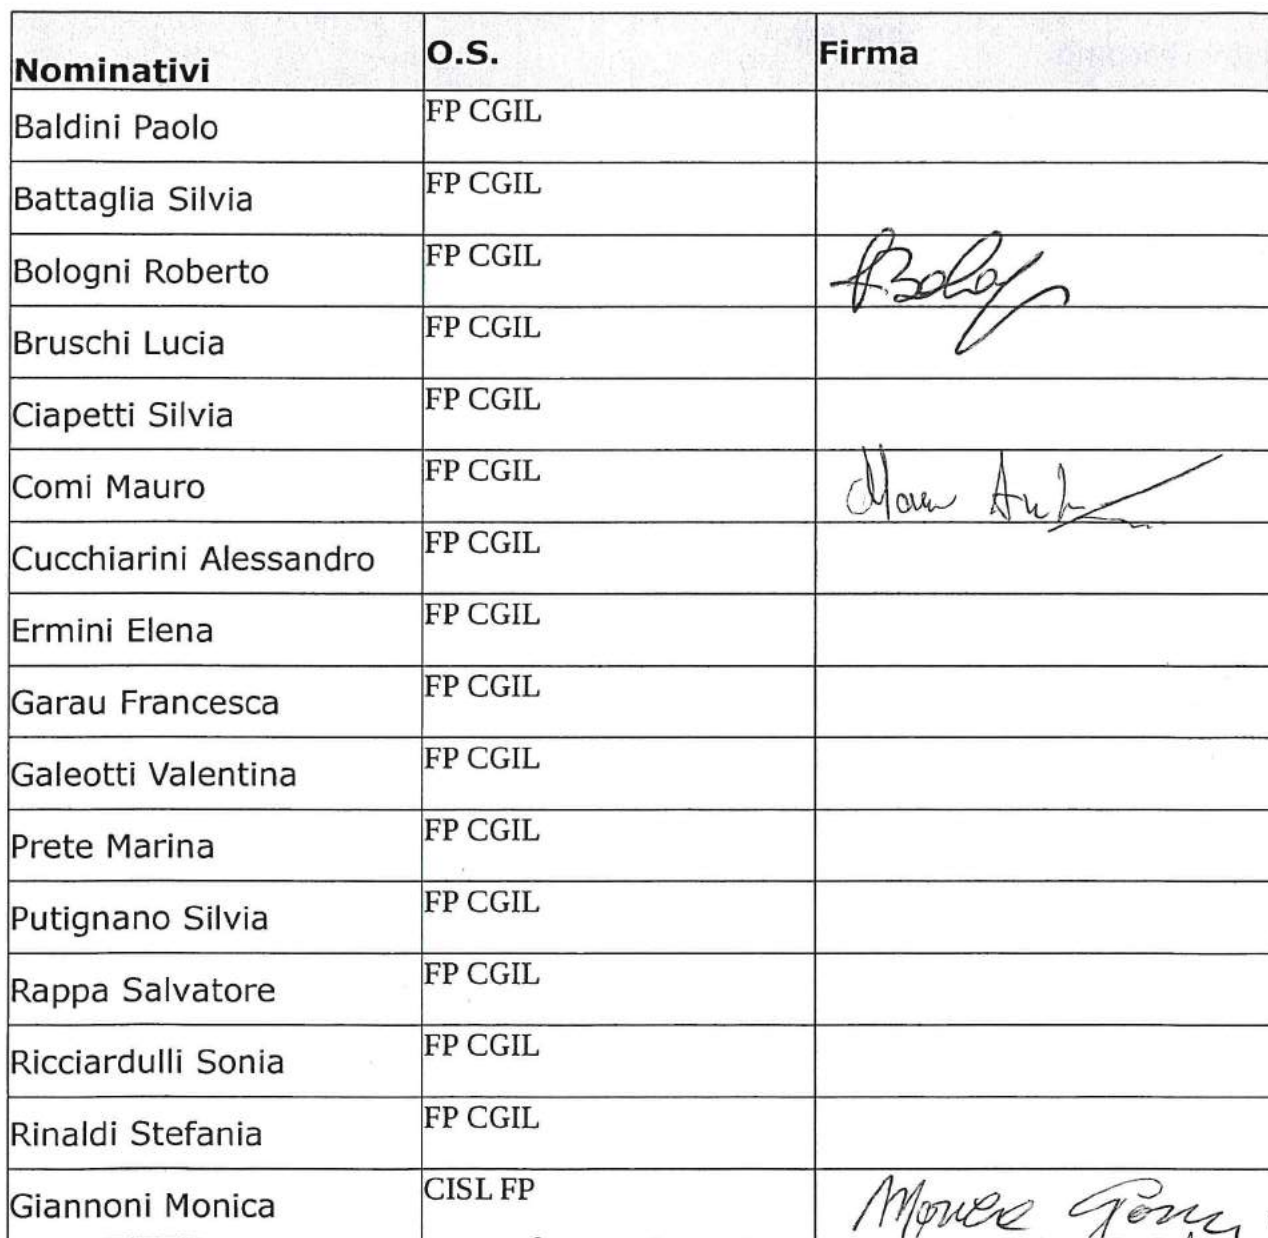 Nominativi O.S. Firma
Baldini Paolo FP CGIL
Battaglia Silvia FP CGIL
Bologni Roberto FP CGIL
Bruschi Lucia FP CGIL
Ciapetti Silvia FP CGIL
Comi Mauro FP CGIL
Cucchiarini Alessandro FP CGIL
Ermini Elena FP CGIL
Garau Francesca FP CGIL
Galeotti Valentina FP CGIL
Prete Marina FP CGIL
Putignano Silvia FP CGIL
Rappa Salvatore FP CGIL
Ricciardulli Sonia FP CGIL
Rinaldi Stefania FP CGIL
Giannoni Monica CISL FP Monica